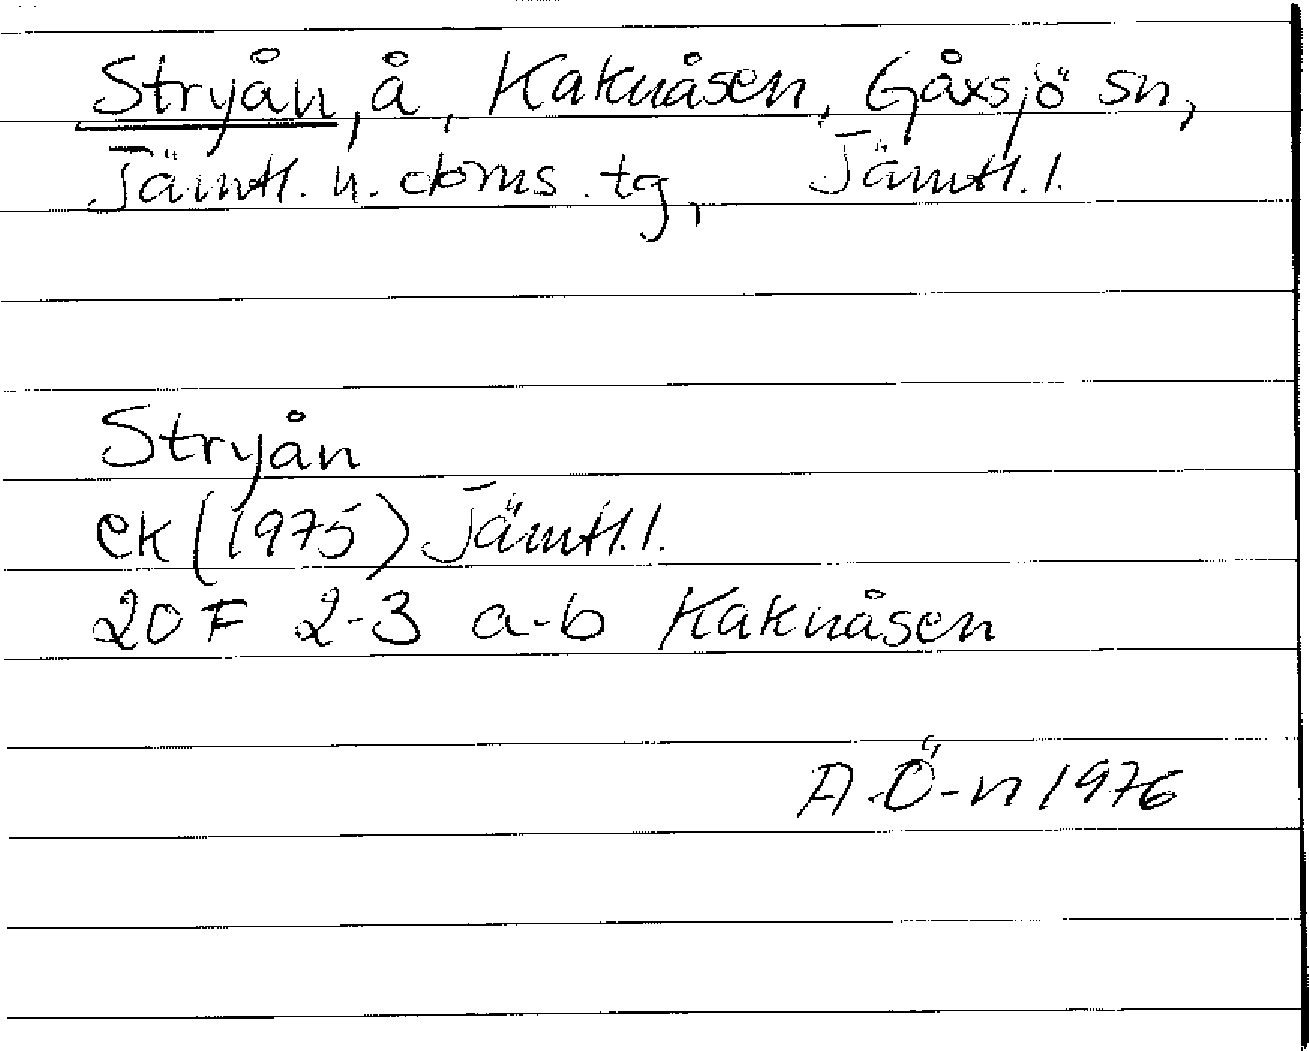 Stryån, å, Kaknåsen, Gåxsjö sn,
Jämtl. n. doms. tg, Jämtl. l.
Stryån
ek (1975) Jämtl. l.
20 F 2-3 a-b Kaknåsen
A. Ö-n 1976